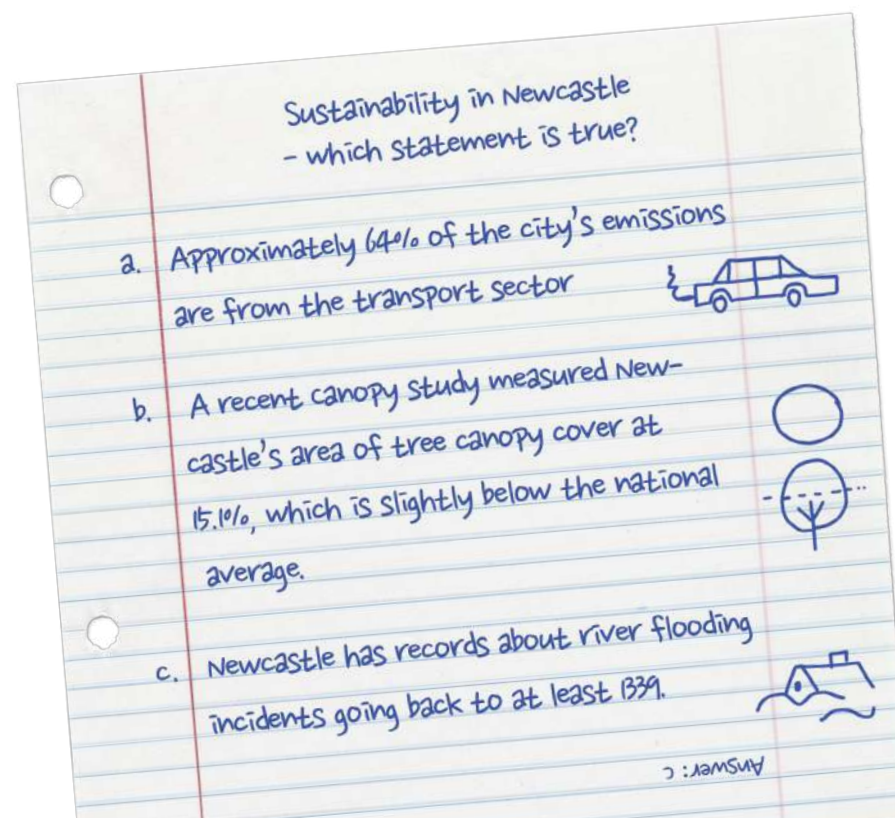 Sustainability in Newcastle
- which statement is true?
a. Approximately 64% of the city's emissions
are from the transport sector
b. A recent canopy study measured New-
castle's area of tree canopy cover at
15.1%, which is slightly below the national
average.
c. Newcastle has records about river flooding
incidents going back to at least 1339.
Answer: c